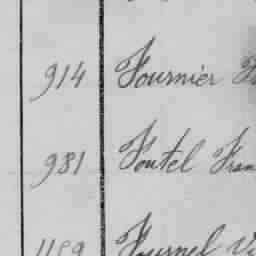 914 Fournier
981 Foutel Fran
1189 Fournel Vi